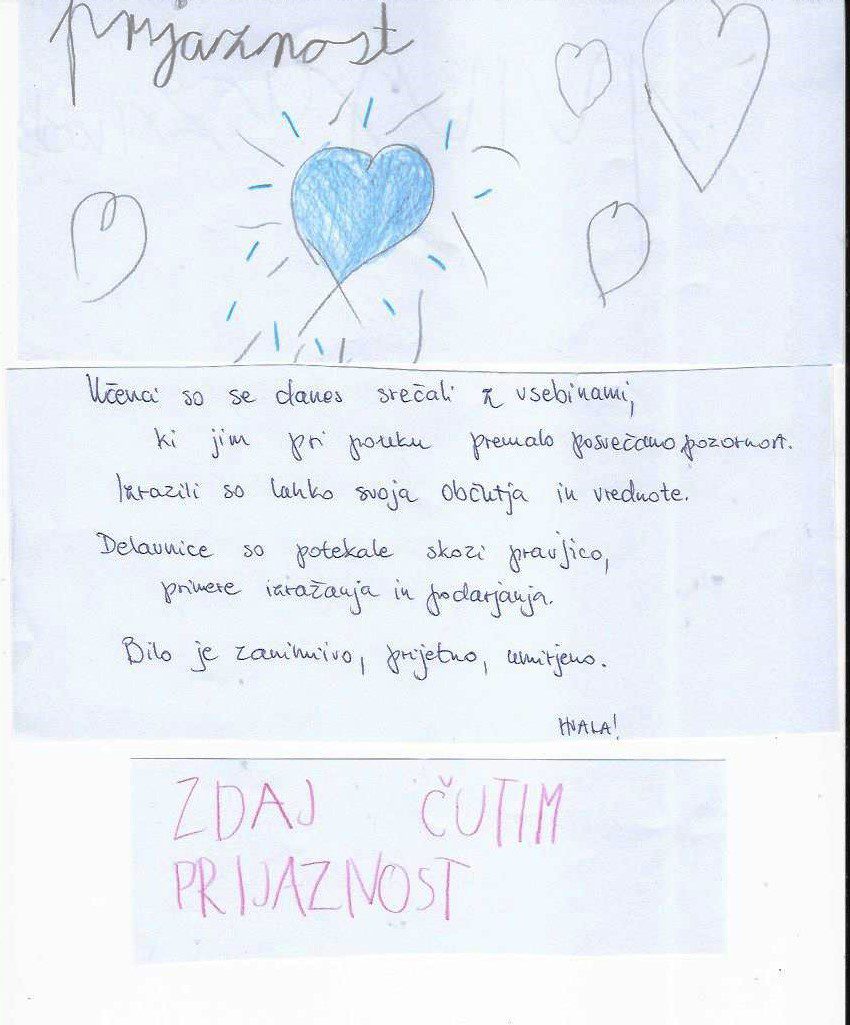 prijaznost
Učenci so se danes srečali z vsebinami,
ki jim pri pouku premalo posvečamo pozornost.
Izrazili so lahko svoja občutja in vrednote.
Delavnice so potekale skozi pravljico,
primere izražanja in podarjanja.
Bilo je zanimivo, prijetno, umirjeno.
HVALA!
ZDAJ ČUTIM
PRIJAZNOST